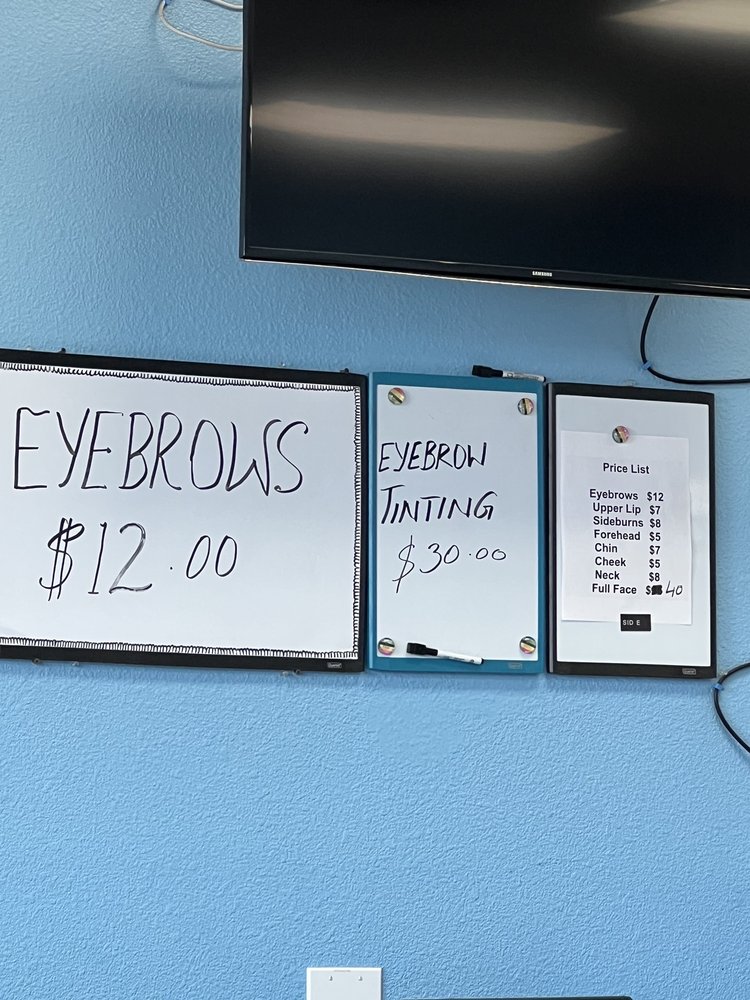 SAMSUNG
EYEBROWS
$12.00
EYEBROW
TINTING
$30.00
Price List
Eyebrows $12
Upper Lip $7
Sideburns $8
Forehead $5
Chin $7
Cheek $5
Neck $8
Full Face $40
SIDE